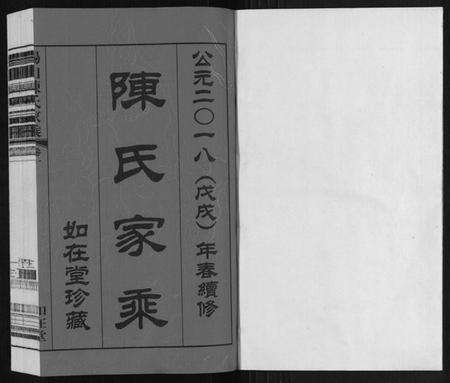 公元二〇一八（戊戌）年春續修
陳氏家乘
如在堂珍藏